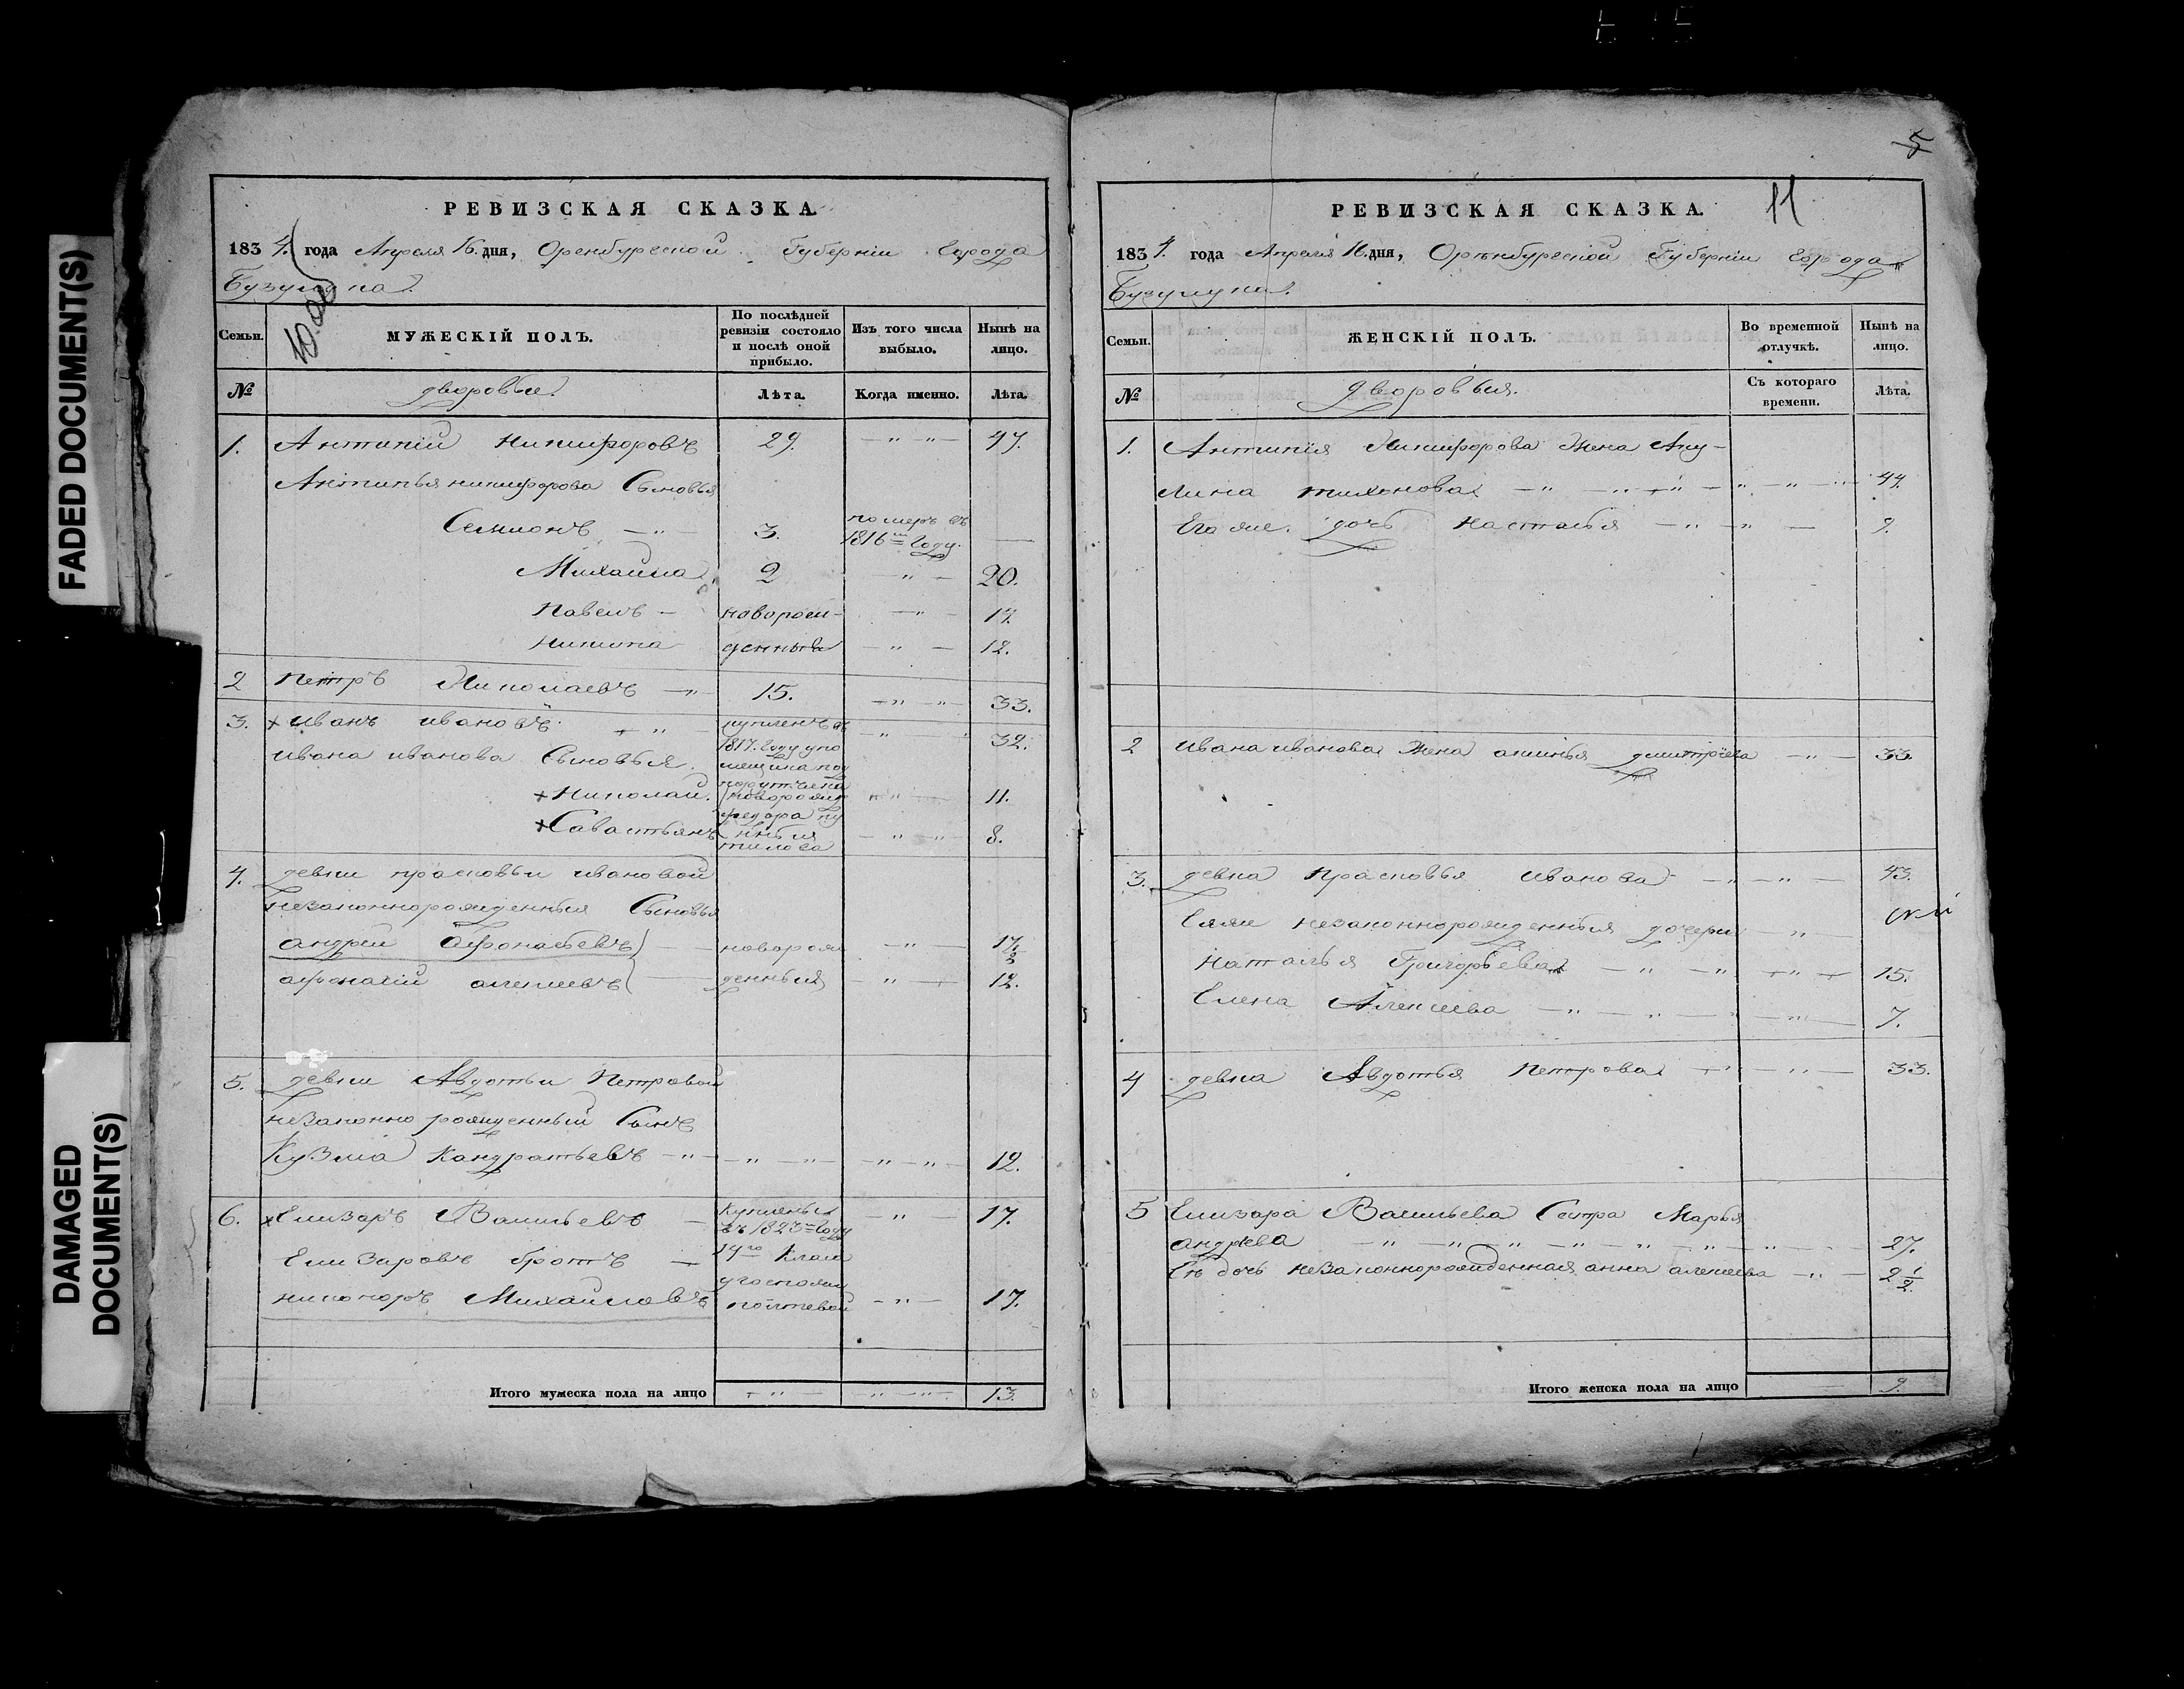 FADED DOCUMENT(S)
DAMAGED
DOCUMENT(S)
РЕВИЗСКАЯ СКАЗКА.
183 4. года Апреля 16. дня, Оренбургской Губернiи Города
Бузулука.
Семьи.
МУЖЕСКIЙ ПОЛЪ.
По послѣдней ревизiи состояло и послѣ оной прибыло.
Изъ того числа выбыло.
Нынѣ на лицо.
№
дворовые.
Лѣта.
Когда именно.
Лѣта.
1. Антипiй Никифоровъ 29. — " " — 47.
Антипья никифорова Сыновья
Семионъ — " — 3. померъ въ 1816 м Году. —
Михайла 2 — " — 20.
Павелъ — новорож- — " — 17.
Никита денныя — " — 12.
2 Петръ Николаевъ — " 15. — " " — 33.
3. + Иванъ ивановъ. — " купленъ въ — " 32.
1817. Году у по
Ивана иванова Сыновья. мещика под
порутчика
+ Николай. новорожд — " — 11.
федора пу
+ Савастьянъ нныя — " — " 8.
тилова
4. девки прасковьи ивановой
незаконнорожденныя Сыновья
андрей Афонасьевъ — — новорож — " — 17.
афонасiй алексеевъ — — денныя — " — 12.
5. девки Авдотьи Петровой
незаконно рожденный Сынъ
Кузма Кандратьевъ — " — — " — " — — " — " — 12.
6. + Елизаръ Васильевъ — Купленыя — " — 17.
въ 1823 м Году
Елизаровъ братъ — 14 го Класа
у госпожи
никоноръ Михайловъ полтевой — " — 17.
Итого мужеска пола на лицо — " — — " — " — 13.
5
11
РЕВИЗСКАЯ СКАЗКА.
183 4. года Апреля 16. дня, Оренбургской Губернiи Города
Бузулука.
Семьи.
ЖЕНСКIЙ ПОЛЪ.
Во временной отлучкѣ.
Нынѣ на лицо.
№
дворовыя.
Съ котораго времени.
Лѣта.
1. Антипiя Никифорова Жена Аку-
лина тихонова — " — " — " — " — " — 44.
Его же. дочь Настасья — " — " — 9.
2 Ивана иванова Жена аксинья дмитрiева — " — 33.
3. девка Прасковья Иванова — " — " — 43.
Еяже незаконнорожденныя дочери — "
Наталья Григорьева — " — " — " — 15.
Елена Алексеева — " — " — " — " — 7.
4 девка Авдотья Петрова — " — " — 33.
5 Елизара Васильева Сестра Марья
андрева — " — " — " — " — " — " — " — 27.
Ея дочь незаконнорожденная анна алексеева — " — 2 1/2.
Итого женска пола на лицо — 9.